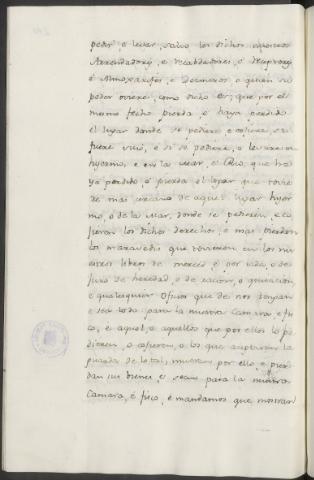 pedir, o levar, salvo los dichos nuestros
Arrendadores, e Recabdadores, o Desmeros
o Almoxarifes, e Dezmeros o quien su
poder oviere, como dicho es, que por el
mesmo fecho pierda, e haya perdido
el lugar donde se pediere o cogiere, si
fuere suio, e si se pediere, o levare en
Yermo, e en la mar, o Rio, que ha
ya perdido, e pierda el lugar que toviere
de mas cercano de aquel lugar Yer
mo, o de la mar, donde se pedieren, e co
gieren los dichos derechos, e mas pierdan
los maravedis que tovieren en los nu
estros libros de merced e por vida, o de
juro de heredad, o de racion, o quitacion,
e qualesquier Oficios que de nos tengan
e sea todo para la nuestra Camara, e fis
co, e aquel, o aquellos que por ellos lo pe
dieren, o cogieren, o los que aceptaren la
guarda de lo tal, mueran por ello e pier
dan sus bienes, e sean para la nuestra
Camara, e fisco, e mandamos que mostran